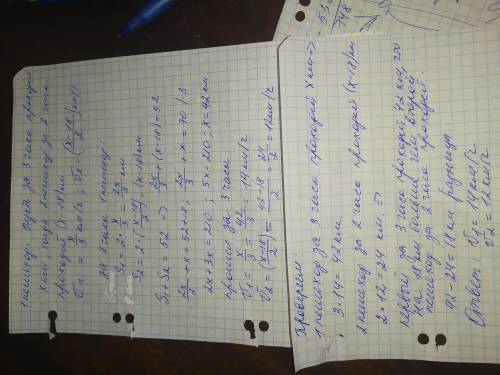 1 пешеход пусть за 3 часа проходит
x км, тогда 2 пешеход за 2 часа
проходит (x-18) км
V₁ = x/3 км/ч; V₂ = (x-18)/2 км/ч
За 2 часа 1 пешеход:
S₁ = 2·x/3 = 2x/3 км
S₂ = 2·(x-18)/2 = (x-18) км
S₁+S₂ = 52 => 2x/3 + (x-18) = 52
2x/3 + x = 52+18; 2x/3 + x = 70 |·3
2x+3x = 210; 5x = 210; x = 42 км
прошел за 3 часа
V₁ = x/3 = 42/3 = 14 км/ч
V₂ = (x-18)/2 = 42-18/2 = 24/2 = 12 км/ч
Проверим
1 пешеход за 3 часа проходит x км =>
3·14 = 42 км
2 пешеход за 2 часа проходит (x-18) км
2·12 = 24 км =>
первый за 3 часа проходит 42 км, это
на 18 км больше чем второй
пешеход за 2 часа проходит.
42-24 = 18 км разница
Ответ: V₁ = 14 км/ч
V₂ = 12 км/ч
748